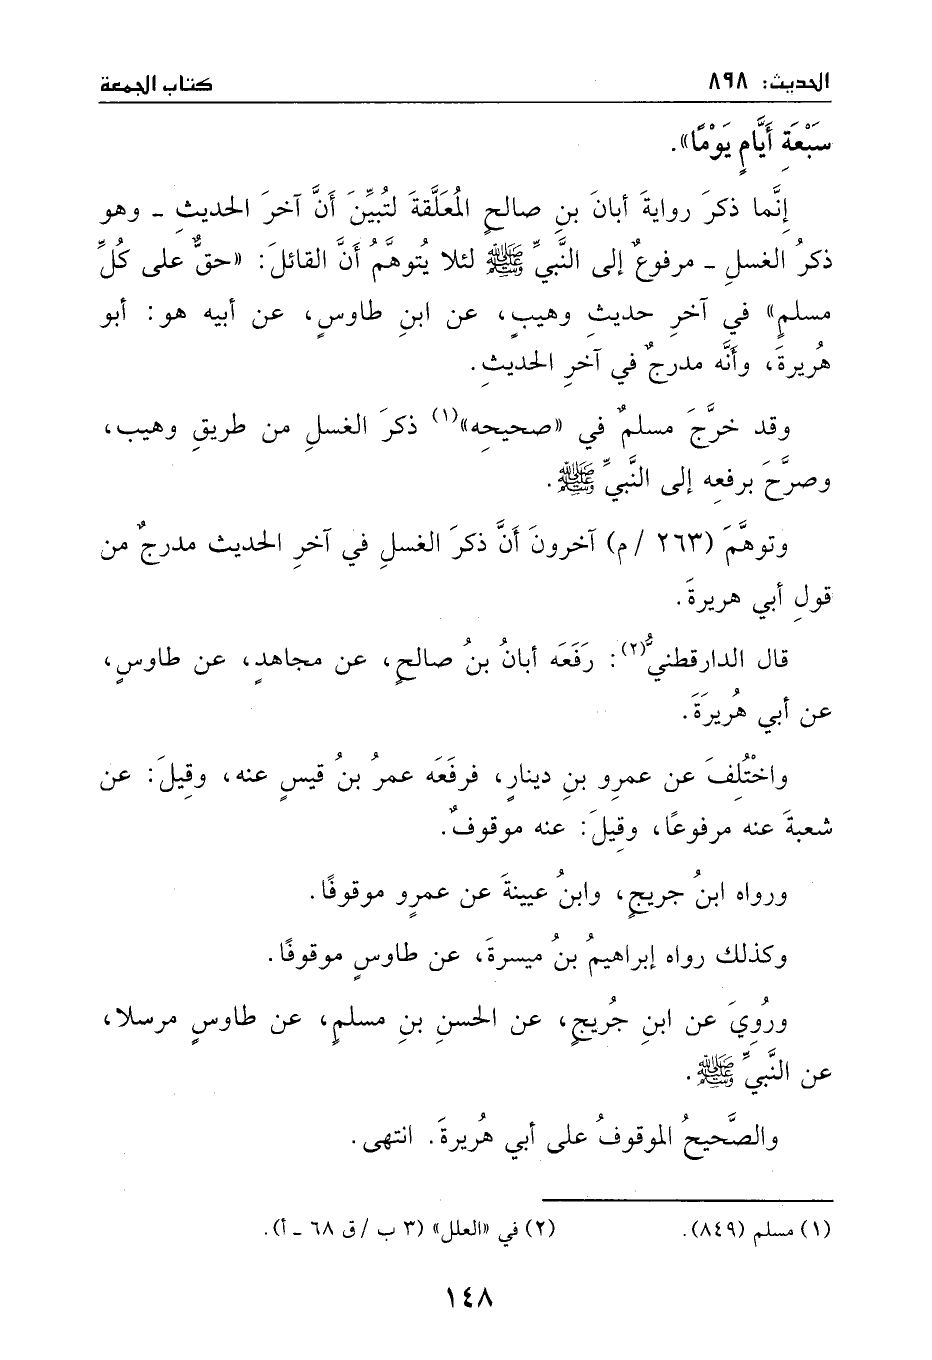 الحديث: ٨٩٨ كتاب الجمعة
سَبْعَةِ أَيَّامٍ يَوْمًا».
إنَّما ذكرَ روايةَ أبانَ بنِ صالحٍ المُعَلَّقةَ لتُبيِّنَ أنَّ آخرَ الحديثِ ـ وهو
ذكرُ الغسلِ ـ مرفوعٌ إلى النَّبيِّ ﷺ لئلا يُتوهَّمُ أنَّ القائلَ: «حقٌّ على كُلِّ
مسلمٍ» في آخرِ حديثِ وهيبٍ، عن ابنِ طاوسٍ، عن أبيه هو: أبو
هُريرةَ، وأنَّه مدرجٌ في آخرِ الحديثِ.
وقد خرَّجَ مسلمٌ في «صحيحِه»(١) ذكرَ الغسلِ من طريقِ وهيبٍ،
وصرَّحَ برفعِه إلى النَّبيِّ ﷺ.
وتوهَّمَ (٢٦٣ / م) آخرونَ أنَّ ذكرَ الغسلِ في آخرِ الحديث مدرجٌ من
قولِ أبي هريرةَ.
قال الدارقطنيُّ(٢): رَفَعَه أبانُ بنُ صالحٍ، عن مجاهدٍ، عن طاوسٍ،
عن أبي هُريرَةَ.
واخْتُلِفَ عن عمرِو بنِ دينارٍ، فرفَعَه عمرُ بنُ قيسٍ عنه، وقِيلَ: عن
شعبةَ عنه مرفوعًا، وقِيلَ: عنه موقوفٌ.
ورواه ابنُ جريجٍ، وابنُ عيينةَ عن عمرٍو موقوفًا.
وكذلك رواه إبراهيمُ بنُ ميسرةَ، عن طاوسٍ موقوفًا.
ورُوِيَ عن ابنِ جُريجٍ، عن الحسنِ بنِ مسلمٍ، عن طاوسٍ مرسلا،
عن النَّبيِّ ﷺ.
والصَّحيحُ الموقوفُ على أبي هُريرةَ. انتهى.
(١) مسلم (٨٤٩). (٢) في «العلل» (٣ ب / ق ٦٨ ـ أ).
١٤٨